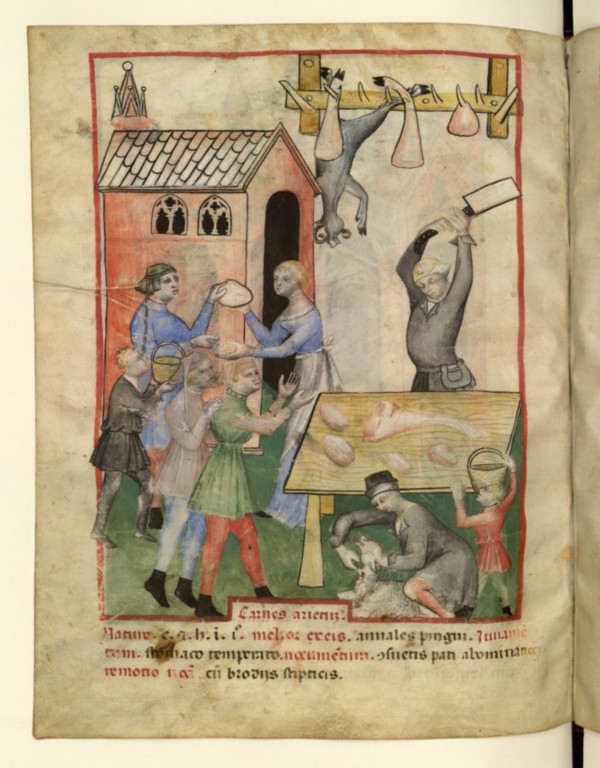 Carnes arietum.
Nature. c. 7. h. i. i͛. melior ex eis. annuales pingui. Iuuamē
tum. stomaco temperato. nocumentum. ↄsuetis pati abominatōe
remotio noc̄. cū brodijs stipticis.